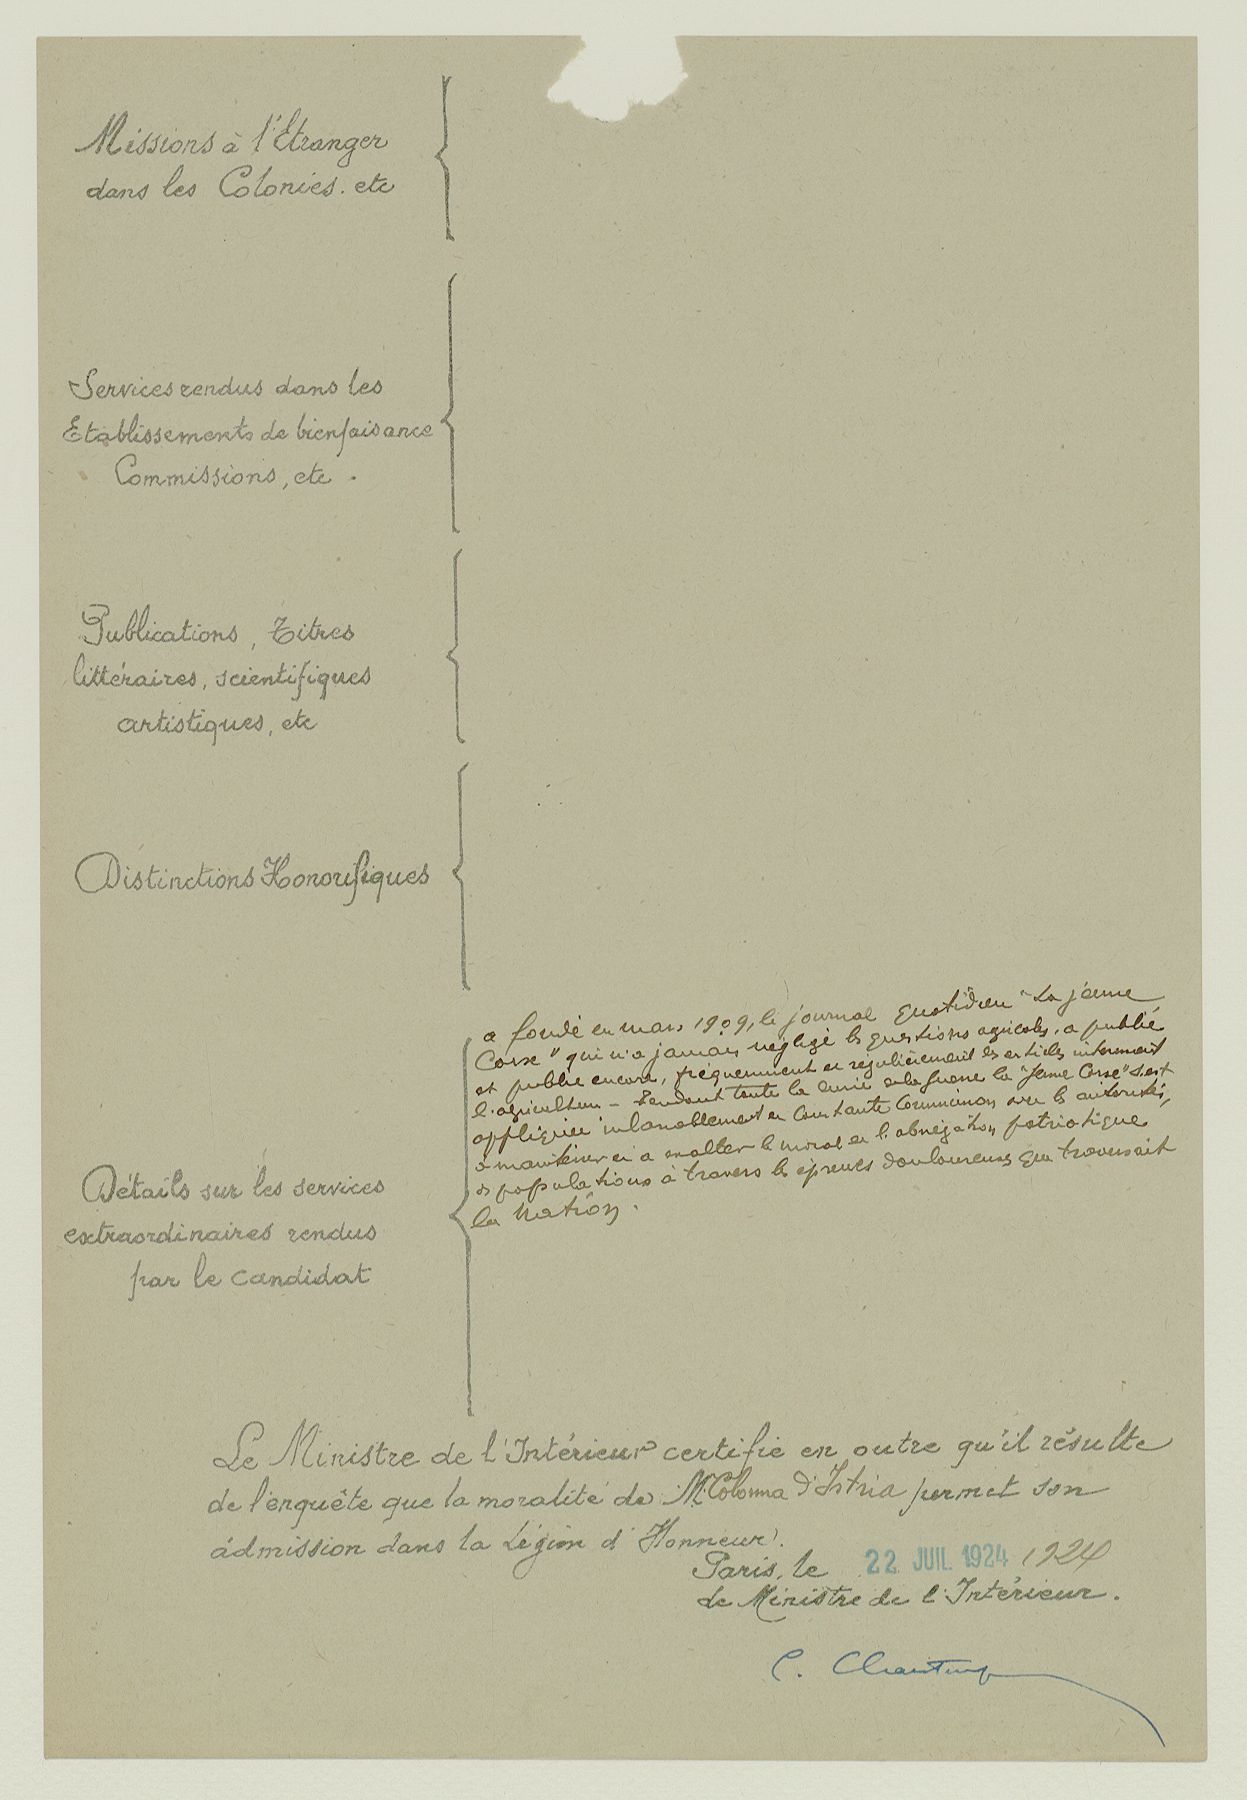 Missions à l'Etranger
dans les Colonies. etc
Services rendus dans les
Etablissements de bienfaisance
Commissions, etc.
Publications, Titres
littéraires, scientifiques
artistiques, etc
Distinctions Honorifiques
Détails sur les services
extraordinaires rendus
par le candidat
a fondé en mars 1909, le journal quotidien "La jeune
Corse" qui n'a jamais négligé les questions agricoles, a publié
et publie encore, fréquemment et régulièrement des articles intéressant
l'agriculture - Pendant toute la durée de la guerre la "Jeune Corse" s'est
appliquée inlassablement en constante communion avec les autorités,
à maintenir et à exalter le moral et l'abnégation patriotique
des populations à travers les épreuves douloureuses que traversait
la Nation.
Le Ministre de l'Intérieur certifie en outre qu'il résulte
de l'enquête que la moralité de M. Colonna d'Istria permet son
admission dans la Légion d'Honneur.
Paris, le 22 JUIL. 1924 1924
Le Ministre de l'Intérieur.
C. Chautemps